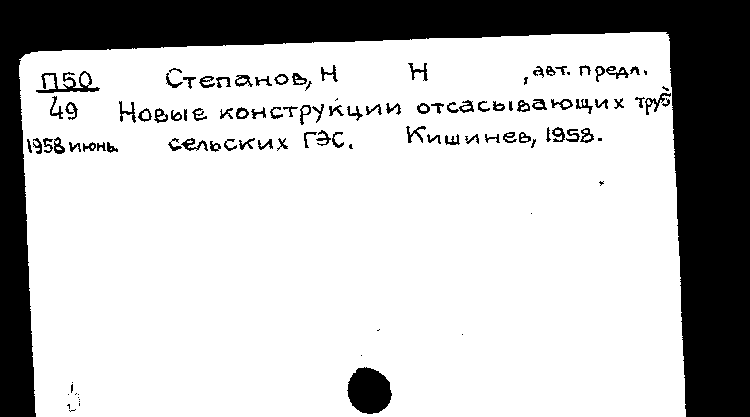 П50 Степанов, Н Н , авт. предл.
49 Новые конструкции отсасывающих труб
1958 июнь. сельских ГЭС. Кишинев, 1958.